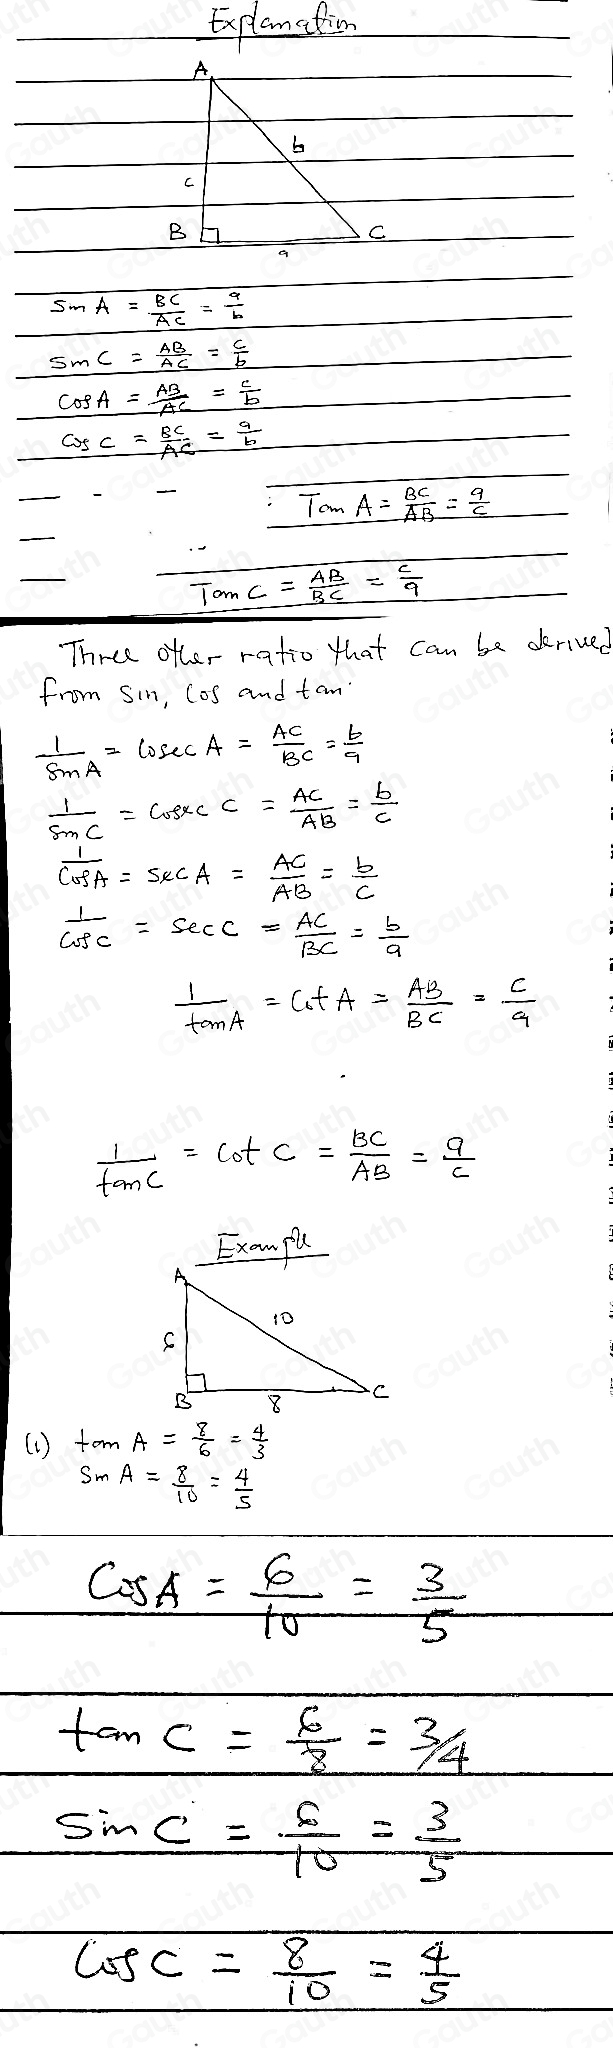 Explanation
A
b
c
B
C
a
Sin A = BC/AC = a/b
Sin C = AB/AC = c/b
Cos A = AB/AC = c/b
Cos C = BC/AC = a/b
Tan A = BC/AB = a/c
Tan C = AB/BC = c/a
Three other ratio that can be derived
from sin, cos and tan.
1/Sin A = Cosec A = AC/BC = b/a
1/Sin C = Cosec C = AC/AB = b/c
1/Cos A = sec A = AC/AB = b/c
1/Cos C = sec C = AC/BC = b/a
1/tan A = Cot A = AB/BC = c/a
1/tan C = Cot C = BC/AB = a/c
Example
A
10
6
B
C
8
(1) tan A = 8/6 = 4/3
Sin A = 8/10 = 4/5
Cos A = 6/10 = 3/5
tan C = 6/8 = 3/4
Sin C = 6/10 = 3/5
Cos C = 8/10 = 4/5